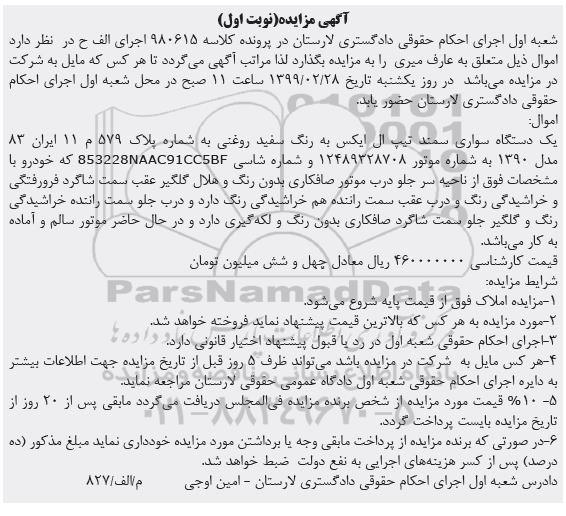 آگهی مزایده(نوبت اول)
شعبه اول اجرای احکام حقوقی دادگستری لارستان در پرونده کلاسه ۹۸۰۶۱۵ اجرای الف ح در نظر دارد
اموال ذیل متعلق به عارف میری را به مزایده بگذارد لذا مراتب آگهی می‌گردد تا هر کس که مایل به شرکت
در مزایده می‌باشد در روز یکشنبه تاریخ ۱۳۹۹/۰۲/۲۸ ساعت ۱۱ صبح در محل شعبه اول اجرای احکام
حقوقی دادگستری لارستان حضور یابد.
اموال:
یک دستگاه سواری سمند تیپ ال ایکس به رنگ سفید روغنی به شماره پلاک ۵۷۹ م ۱۱ ایران ۸۳
مدل ۱۳۹۰ به شماره موتور ۱۲۴۸۹۳۲۸۷۰۸ و شماره شاسی 853228NAAC91CC5BF که خودرو با
مشخصات فوق از ناحیه سر جلو درب موتور صافکاری بدون رنگ و هلال گلگیر عقب سمت شاگرد فرورفتگی
و خراشیدگی رنگ و درب عقب سمت راننده هم خراشیدگی رنگ دارد و درب جلو سمت راننده خراشیدگی
رنگ و گلگیر جلو سمت شاگرد صافکاری بدون رنگ و لکه‌گیری دارد و در حال حاضر موتور سالم و آماده
به کار می‌باشد.
قیمت کارشناسی ۴۶۰۰۰۰۰۰۰۰ ریال معادل چهل و شش میلیون تومان
شرایط مزایده:
۱-مزایده املاک فوق از قیمت پایه شروع می‌شود.
۲-مورد مزایده به هر کس که بالاترین قیمت پیشنهاد نماید فروخته خواهد شد.
۳-اجرای احکام حقوقی شعبه اول در رد یا قبول پیشنهاد اختیار قانونی دارد.
۴-هر کس مایل به شرکت در مزایده باشد می‌تواند ظرف ۵ روز قبل از تاریخ مزایده جهت اطلاعات بیشتر
به دایره اجرای احکام حقوقی شعبه اول دادگاه عمومی حقوقی لارستان مراجعه نماید.
۵- ۱۰% قیمت مورد مزایده از شخص برنده مزایده فی‌المجلس دریافت می‌گردد مابقی پس از ۲۰ روز از
تاریخ مزایده بایست پرداخت گردد.
۶-در صورتی که برنده مزایده از پرداخت مابقی وجه یا برداشتن مورد مزایده خودداری نماید مبلغ مذکور (ده
درصد) پس از کسر هزینه‌های اجرایی به نفع دولت ضبط خواهد شد.
دادرس شعبه اول اجرای احکام حقوقی دادگستری لارستان - امین اوجی م/الف/۸۲۷
ParsNamadData
۰۲۱-۸۸۳۴۹۶۷۰-۵